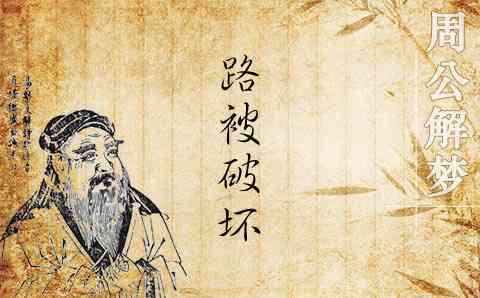 周公解梦
路被破坏